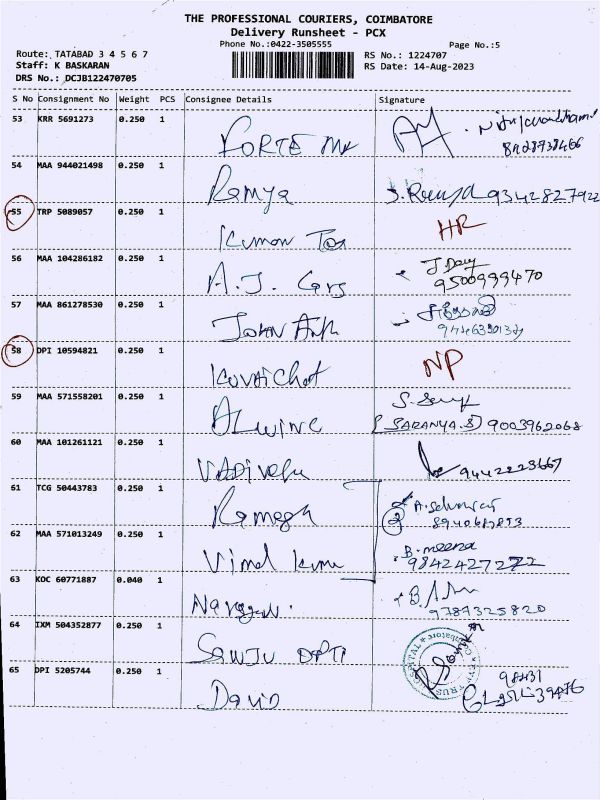 THE PROFESSIONAL COURIERS, COIMBATORE
Delivery Runsheet - PCX
Phone No.:0422-3505555 Page No.:5
Route: TATABAD 3 4 5 6 7 RS No.: 1224707
Staff: K BASKARAN RS Date: 14-Aug-2023
DRS No.: DCJB122470705
S No Consignment No Weight PCS Consignee Details Signature
53 KRR 5691273 0.250 1
FORTE
54 MAA 944021498 0.250 1
Ramya 9342827922
55 TRP 5089057 0.250 1
Kumon HR
56 MAA 104286182 0.250 1
A.J. 9500999470
57 MAA 861278530 0.250 1
John
58 DPI 10594821 0.250 1
NP
59 MAA 571558201 0.250 1
ALWINE (SARANYA.S) 9003962068
60 MAA 101261121 0.250 1
VADIVELU 9442223667
61 TCG 50443783 0.250 1
Ramesh
62 MAA 571013249 0.250 1 B. meena
Vimal 9842427272
63 KOC 60771887 0.040 1
9787325820
64 IXM 504352877 0.250 1
SANJU OPTI
65 DPI 5205744 0.250 1
David 98431
39476